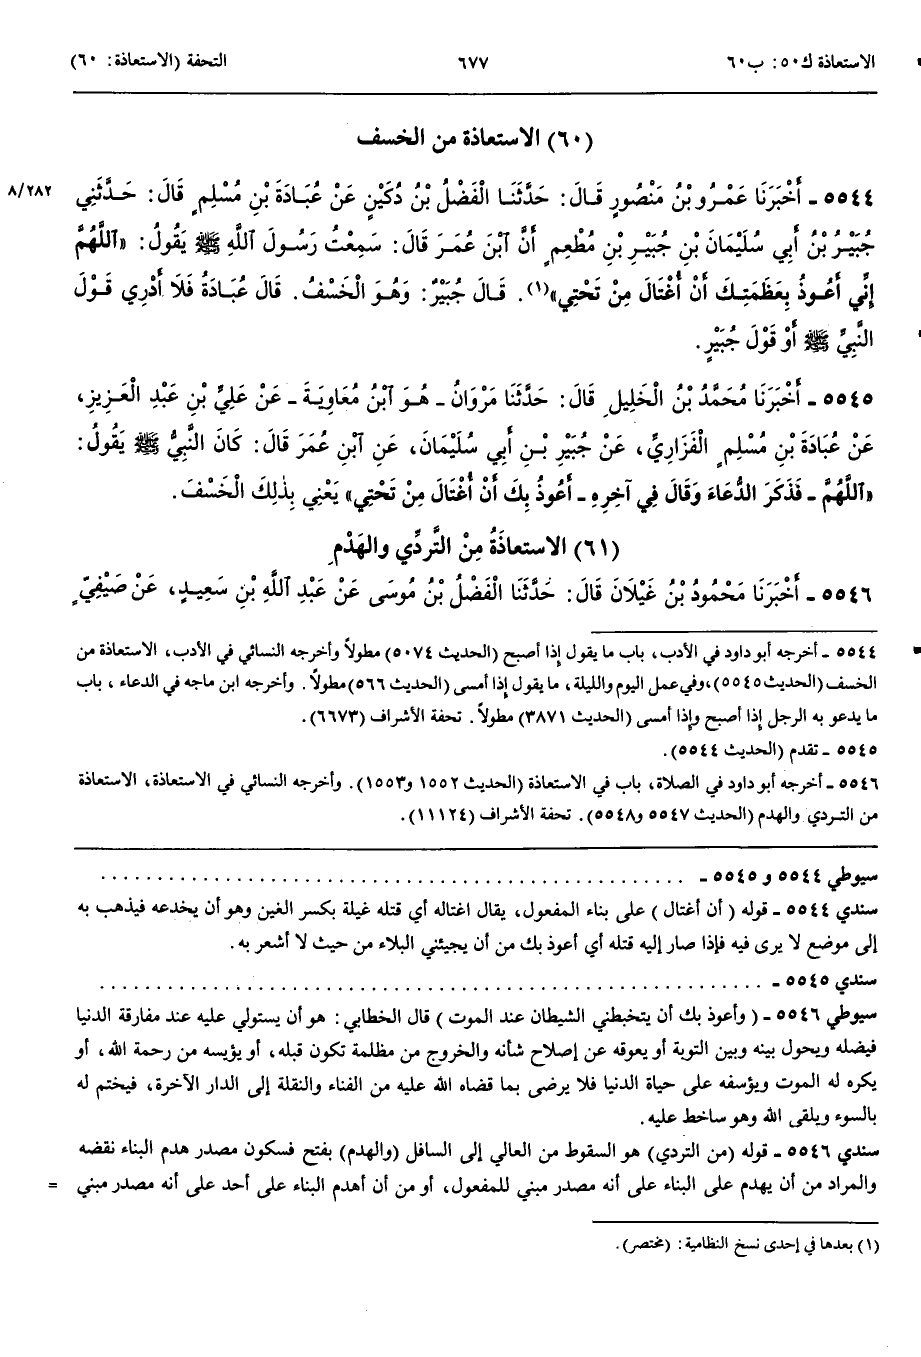 الاستعاذة ك٥٠: ب٦٠ ٦٧٧ التحفة (الاستعاذة: ٦٠)
(٦٠) الاستعاذة من الخسف
٥٥٤٤ - أَخْبَرَنَا عَمْرُو بْنُ مَنْصُورٍ قَالَ: حَدَّثَنَا الْفَضْلُ بْنُ دُكَيْنٍ عَنْ عُبَادَةَ بْنِ مُسْلِمٍ قَالَ: حَدَّثَنِي ٨/٢٨٢
جُبَيْرُ بْنُ أَبِي سُلَيْمَانَ بْنِ جُبَيْرِ بْنِ مُطْعِمٍ أَنَّ ٱبْنَ عُمَرَ قَالَ: سَمِعْتُ رَسُولَ اللَّهِ ﷺ يَقُولُ: «ٱللَّهُمَّ
إِنِّي أَعُوذُ بِعَظَمَتِكَ أَنْ أُغْتَالَ مِنْ تَحْتِي»(١). قَالَ جُبَيْرٌ: وَهُوَ الْخَسْفُ. قَالَ عُبَادَةُ فَلَا أَدْرِي قَوْلَ
النَّبِيِّ ﷺ أَوْ قَوْلَ جُبَيْرٍ.
٥٥٤٥ - أَخْبَرَنَا مُحَمَّدُ بْنُ الْخَلِيلِ قَالَ: حَدَّثَنَا مَرْوَانُ - هُوَ ٱبْنُ مُعَاوِيَةَ - عَنْ عَلِيِّ بْنِ عَبْدِ الْعَزِيزِ،
عَنْ عُبَادَةَ بْنِ مُسْلِمٍ الْفَزَارِيِّ، عَنْ جُبَيْرِ بْنِ أَبِي سُلَيْمَانَ، عَنِ ٱبْنِ عُمَرَ قَالَ: كَانَ النَّبِيُّ ﷺ يَقُولُ:
«ٱللَّهُمَّ - فَذَكَرَ الدُّعَاءَ وَقَالَ فِي آخِرِهِ - أَعُوذُ بِكَ أَنْ أُغْتَالَ مِنْ تَحْتِي» يَعْنِي بِذٰلِكَ الْخَسْفَ.
(٦١) الاستعاذَةُ مِنْ التَّردِّي والهَدْمِ
٥٥٤٦ - أَخْبَرَنَا مَحْمُودُ بْنُ غَيْلَانَ قَالَ: حَدَّثَنَا الْفَضْلُ بْنُ مُوسَى عَنْ عَبْدِ ٱللَّهِ بْنِ سَعِيدٍ، عَنْ صَيْفِيٍّ
٥٥٤٤ - أخرجه أبو داود في الأدب، باب ما يقول إذا أصبح (الحديث ٥٠٧٤) مطولاً وأخرجه النسائي في الأدب، الاستعاذة من
الخسف (الحديث ٥٥٤٥)، وفي عمل اليوم والليلة، ما يقول إذا أمسى (الحديث ٥٦٦) مطولاً. وأخرجه ابن ماجه في الدعاء، باب
ما يدعو به الرجل إذا أصبح وإذا أمسى (الحديث ٣٨٧١) مطولاً. تحفة الأشراف (٦٦٧٣).
٥٥٤٥ - تقدم (الحديث ٥٥٤٤).
٥٥٤٦ - أخرجه أبو داود في الصلاة، باب في الاستعاذة (الحديث ١٥٥٢ و١٥٥٣). وأخرجه النسائي في الاستعاذة، الاستعاذة
من التردي والهدم (الحديث ٥٥٤٧ و٥٥٤٨). تحفة الأشراف (١١١٢٤).
سيوطي ٥٥٤٤ و ٥٥٤٥ - . . . . . . . . . . . . . . . . . . . . . . . . . . . . . .
سندي ٥٥٤٤ - قوله (أن أغتال) على بناء المفعول، يقال اغتاله أي قتله غيلة بكسر الغين وهو أن يخدعه فيذهب به
إلى موضع لا يرى فيه فإذا صار إليه قتله أي أعوذ بك من أن يجيئني البلاء من حيث لا أشعر به.
سندي ٥٥٤٥ - . . . . . . . . . . . . . . . . . . . . . . . . . . . . . .
سيوطي ٥٥٤٦ - (وأعوذ بك أن يتخبطني الشيطان عند الموت) قال الخطابي: هو أن يستولي عليه عند مفارقة الدنيا
فيضله ويحول بينه وبين التوبة أو يعوقه عن إصلاح شأنه والخروج من مظلمة تكون قبله، أو يؤيسه من رحمة الله، أو
يكره له الموت ويؤسفه على حياة الدنيا فلا يرضى بما قضاه الله عليه من الفناء والنقلة إلى الدار الآخرة، فيختم له
بالسوء ويلقى الله وهو ساخط عليه.
سندي ٥٥٤٦ - قوله (من التردي) هو السقوط من العالي إلى السافل (والهدم) بفتح فسكون مصدر هدم البناء نقضه
والمراد من أن يهدم على البناء على أنه مصدر مبني للمفعول، أو من أن أهدم البناء على أحد على أنه مصدر مبني =
(١) بعدها في إحدى نسخ النظامية: (مختصر).